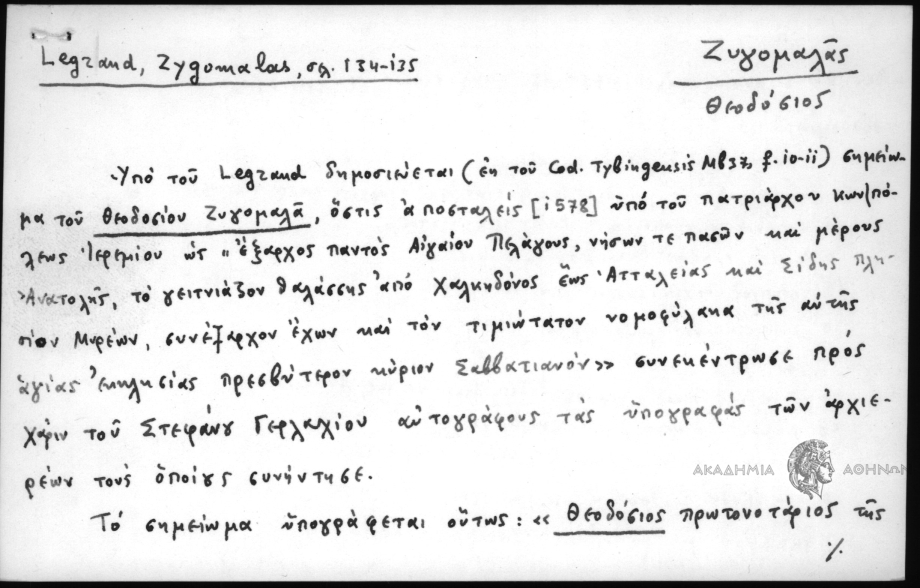 Legrand, Zygomalas, σελ. 134-135
Ζυγομαλᾶς
Θεοδόσιος
Ὑπό τοῦ Legrand δημοσιεύεται (ἐκ τοῦ Cod. Tybingensis Mb37, f. 10-11) σημείω-
μα τοῦ Θεοδοσίου Ζυγομαλᾶ, ὅστις ἀποσταλείς [1578] ὑπό τοῦ πατριάρχου Κων/πό-
λεως Ἱερεμίου ὡς "ἔξαρχος παντός Αἰγαίου Πελάγους, νήσων τε πασῶν καί μέρους
Ἀνατολῆς, τό γειτνιάζον θαλάσσης ἀπό Χαλκηδόνος ἕως Ἀτταλείας καί Σίδης πλη-
σίον Μυρέων, συνέξαρχον ἔχων καί τόν τιμιώτατον νομοφύλακα τῆς αὐτῆς
ἁγίας ἐκκλησίας πρεσβύτερον κύριον Σαββατιανόν» συνεκέντρωσε πρός
χάριν τοῦ Στεφάνου Γερλαχίου αὐτογράφους τάς ὑπογραφάς τῶν ἀρχιε-
ρέων τούς ὁποίους συνήντησε.
ΑΚΑΔΗΜΙΑ ΑΘΗΝΩΝ
Τό σημείωμα ὑπογράφεται οὕτως: «Θεοδόσιος πρωτονοτάριος τῆς
./.